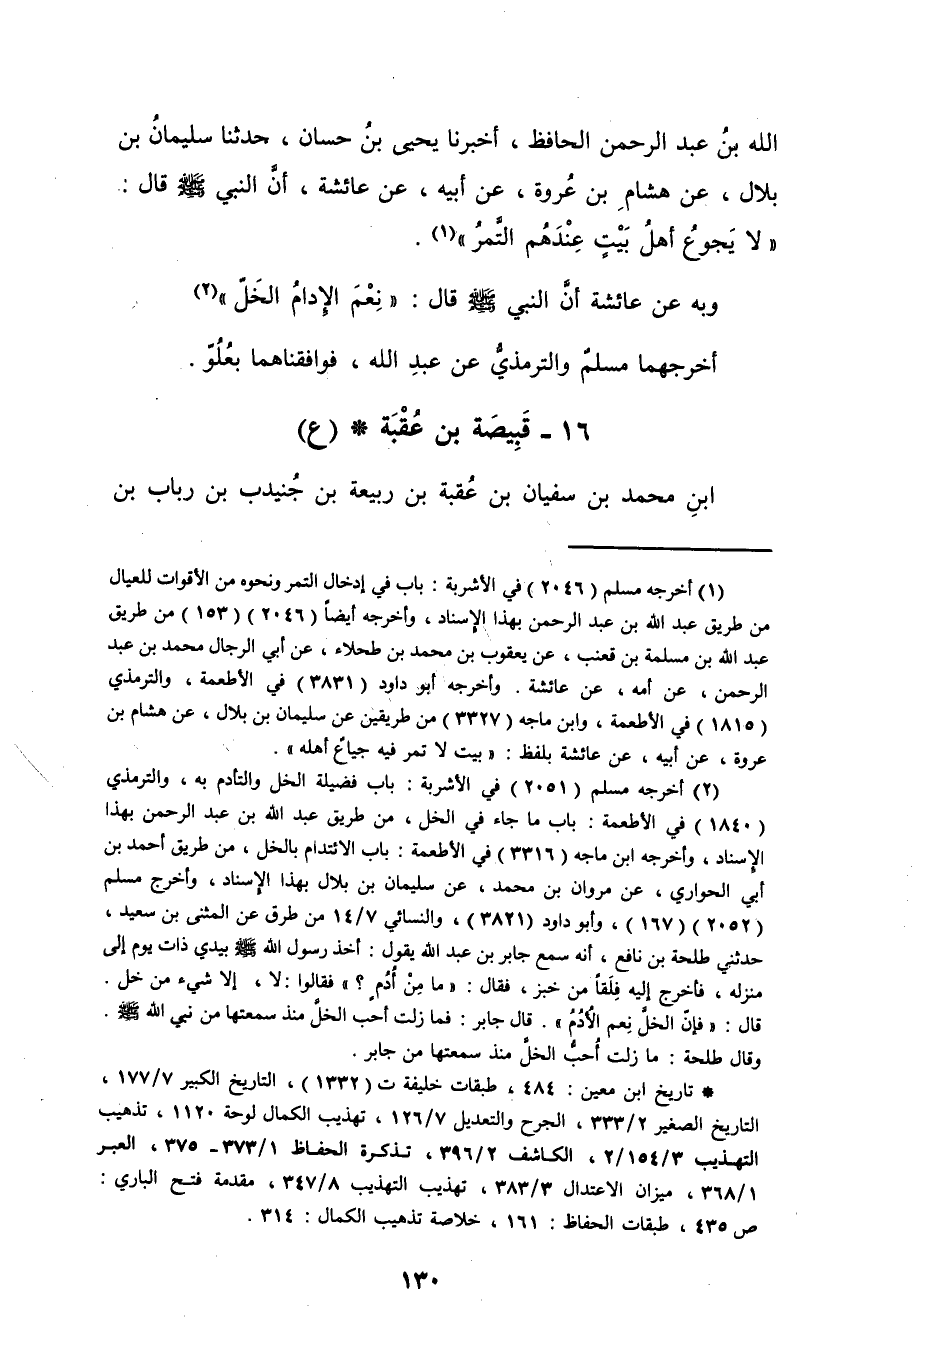 الله بنُ عبد الرحمن الحافظ ، أخبرنا يحيى بنُ حسان ، حدثنا سليمانُ بن
بلال ، عن هشامِ بن عُروة ، عن أبيه ، عن عائشة ، أنَّ النبي ﷺ قال :
« لا يَجوعُ أهلُ بَيْتٍ عِنْدَهُم التَّمرُ »(١) .
وبه عن عائشة أنَّ النبي ﷺ قال : « نِعْمَ الإدامُ الخَلّ »(٢)
أخرجهما مسلمٌ والترمذيُّ عن عبدِ الله ، فوافقناهما بعُلُوّ .
١٦ - قَبِيصَة بن عُقْبَة * (ع)
ابنِ محمد بن سفيان بن عُقبة بن ربيعة بن جُنيدب بن رباب بن
(١) أخرجه مسلم ( ٢٠٤٦ ) في الأشربة : باب في إدخال التمر ونحوه من الأقوات للعيال
من طريق عبد الله بن عبد الرحمن بهذا الإسناد ، وأخرجه أيضاً ( ٢٠٤٦ ) ( ١٥٣ ) من طريق
عبد الله بن مسلمة بن قعنب ، عن يعقوب بن محمد بن طحلاء ، عن أبي الرجال محمد بن عبد
الرحمن ، عن أمه ، عن عائشة . وأخرجه أبو داود ( ٣٨٣١ ) في الأطعمة ، والترمذي
( ١٨١٥ ) في الأطعمة ، وابن ماجه ( ٣٣٢٧ ) من طريقين عن سليمان بن بلال ، عن هشام بن
عروة ، عن أبيه ، عن عائشة بلفظ : « بيت لا تمر فيه جياعٌ أهله » .
(٢) أخرجه مسلم ( ٢٠٥١ ) في الأشربة : باب فضيلة الخل والتأدم به ، والترمذي
( ١٨٤٠ ) في الأطعمة : باب ما جاء في الخل ، من طريق عبد الله بن عبد الرحمن بهذا
الإسناد ، وأخرجه ابن ماجه ( ٣٣١٦ ) في الأطعمة : باب الائتدام بالخل ، من طريق أحمد بن
أبي الحواري ، عن مروان بن محمد ، عن سليمان بن بلال بهذا الإسناد ، وأخرج مسلم
( ٢٠٥٢ ) ( ١٦٧ ) ، وأبو داود (٣٨٢١ ) ، والنسائي ١٤/٧ من طرق عن المثنى بن سعيد ،
حدثني طلحة بن نافع ، أنه سمع جابر بن عبد الله يقول : أخذ رسول الله ﷺ بيدي ذات يوم إلى
منزله ، فأخرج إليه فِلَقاً من خبز ، فقال : « ما مِنْ أُدُمٍ ؟ » فقالوا :لا ، إلا شيء من خل .
قال : « فإنّ الخلَّ نِعم الأُدُمُ » . قال جابر : فما زلت أحب الخلَّ منذ سمعتها من نبي الله ﷺ .
وقال طلحة : ما زلت أُحبُّ الخلَّ منذ سمعتها من جابر .
* تاريخ ابن معين : ٤٨٤ ، طبقات خليفة ت ( ١٣٣٢ ) ، التاريخ الكبير ١٧٧/٧ ،
التاريخ الصغير ٣٣٣/٢ ، الجرح والتعديل ١٢٦/٧ ، تهذيب الكمال لوحة ١١٢٠ ، تذهيب
التهذيب ٢/١٥٤/٣ ، الكاشف ٣٩٦/٢ ، تذكرة الحفاظ ٣٧٣/١ - ٣٧٥ ، العبر
٣٦٨/١ ، ميزان الاعتدال ٣٨٣/٣ ، تهذيب التهذيب ٣٤٧/٨ ، مقدمة فتح الباري :
ص ٤٣٥ ، طبقات الحفاظ : ١٦١ ، خلاصة تذهيب الكمال : ٣١٤ .
١٣٠